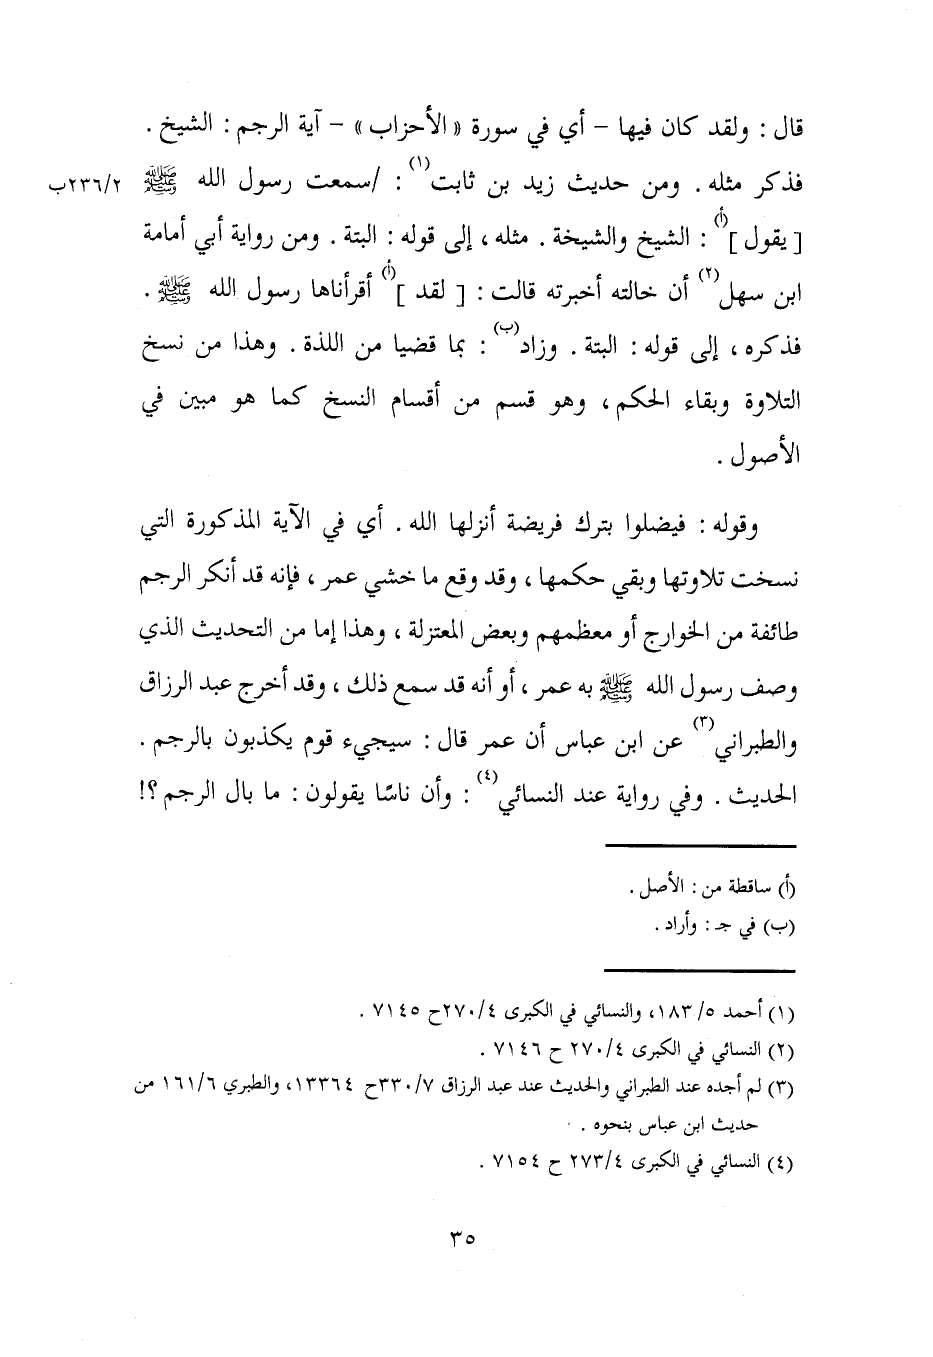 قال : ولقد كان فيها - أي في سورة «الأحزاب» - آية الرجم : الشيخ .
فذكر مثله . ومن حديث زيد بن ثابت(١) : /سمعت رسول الله ﷺ ٢٣٦/٢ب
[ يقول ](أ) : الشيخ والشيخة . مثله ، إلى قوله : البتة . ومن رواية أبي أمامة
ابن سهل(٢) أن خالته أخبرته قالت : [ لقد ](أ) أقرأناها رسول الله ﷺ .
فذكره ، إلى قوله : البتة . وزاد(ب) : بما قضيا من اللذة . وهذا من نسخ
التلاوة وبقاء الحكم ، وهو قسم من أقسام النسخ كما هو مبين في
الأصول .
وقوله : فيضلوا بترك فريضة أنزلها الله . أي في الآية المذكورة التي
نسخت تلاوتها وبقي حكمها ، وقد وقع ما خشي عمر ، فإنه قد أنكر الرجم
طائفة من الخوارج أو معظمهم وبعض المعتزلة ، وهذا إما من التحديث الذي
وصف رسول الله ﷺ به عمر ، أو أنه قد سمع ذلك ، وقد أخرج عبد الرزاق
والطبراني(٣) عن ابن عباس أن عمر قال : سيجيء قوم يكذبون بالرجم .
الحديث . وفي رواية عند النسائي(٤) : وأن ناسًا يقولون : ما بال الرجم ؟!
(أ) ساقطة من : الأصل .
(ب) في جـ : وأراد .
(١) أحمد ٥/ ١٨٣، والنسائي في الكبرى ٢٧٠/٤ح ٧١٤٥ .
(٢) النسائي في الكبرى ٢٧٠/٤ ح ٧١٤٦ .
(٣) لم أجده عند الطبراني والحديث عند عبد الرزاق ٣٣٠/٧ح ١٣٣٦٤، والطبري ١٦١/٦ من
حديث ابن عباس بنحوه .
(٤) النسائي في الكبرى ٢٧٣/٤ ح ٧١٥٤ .
٣٥